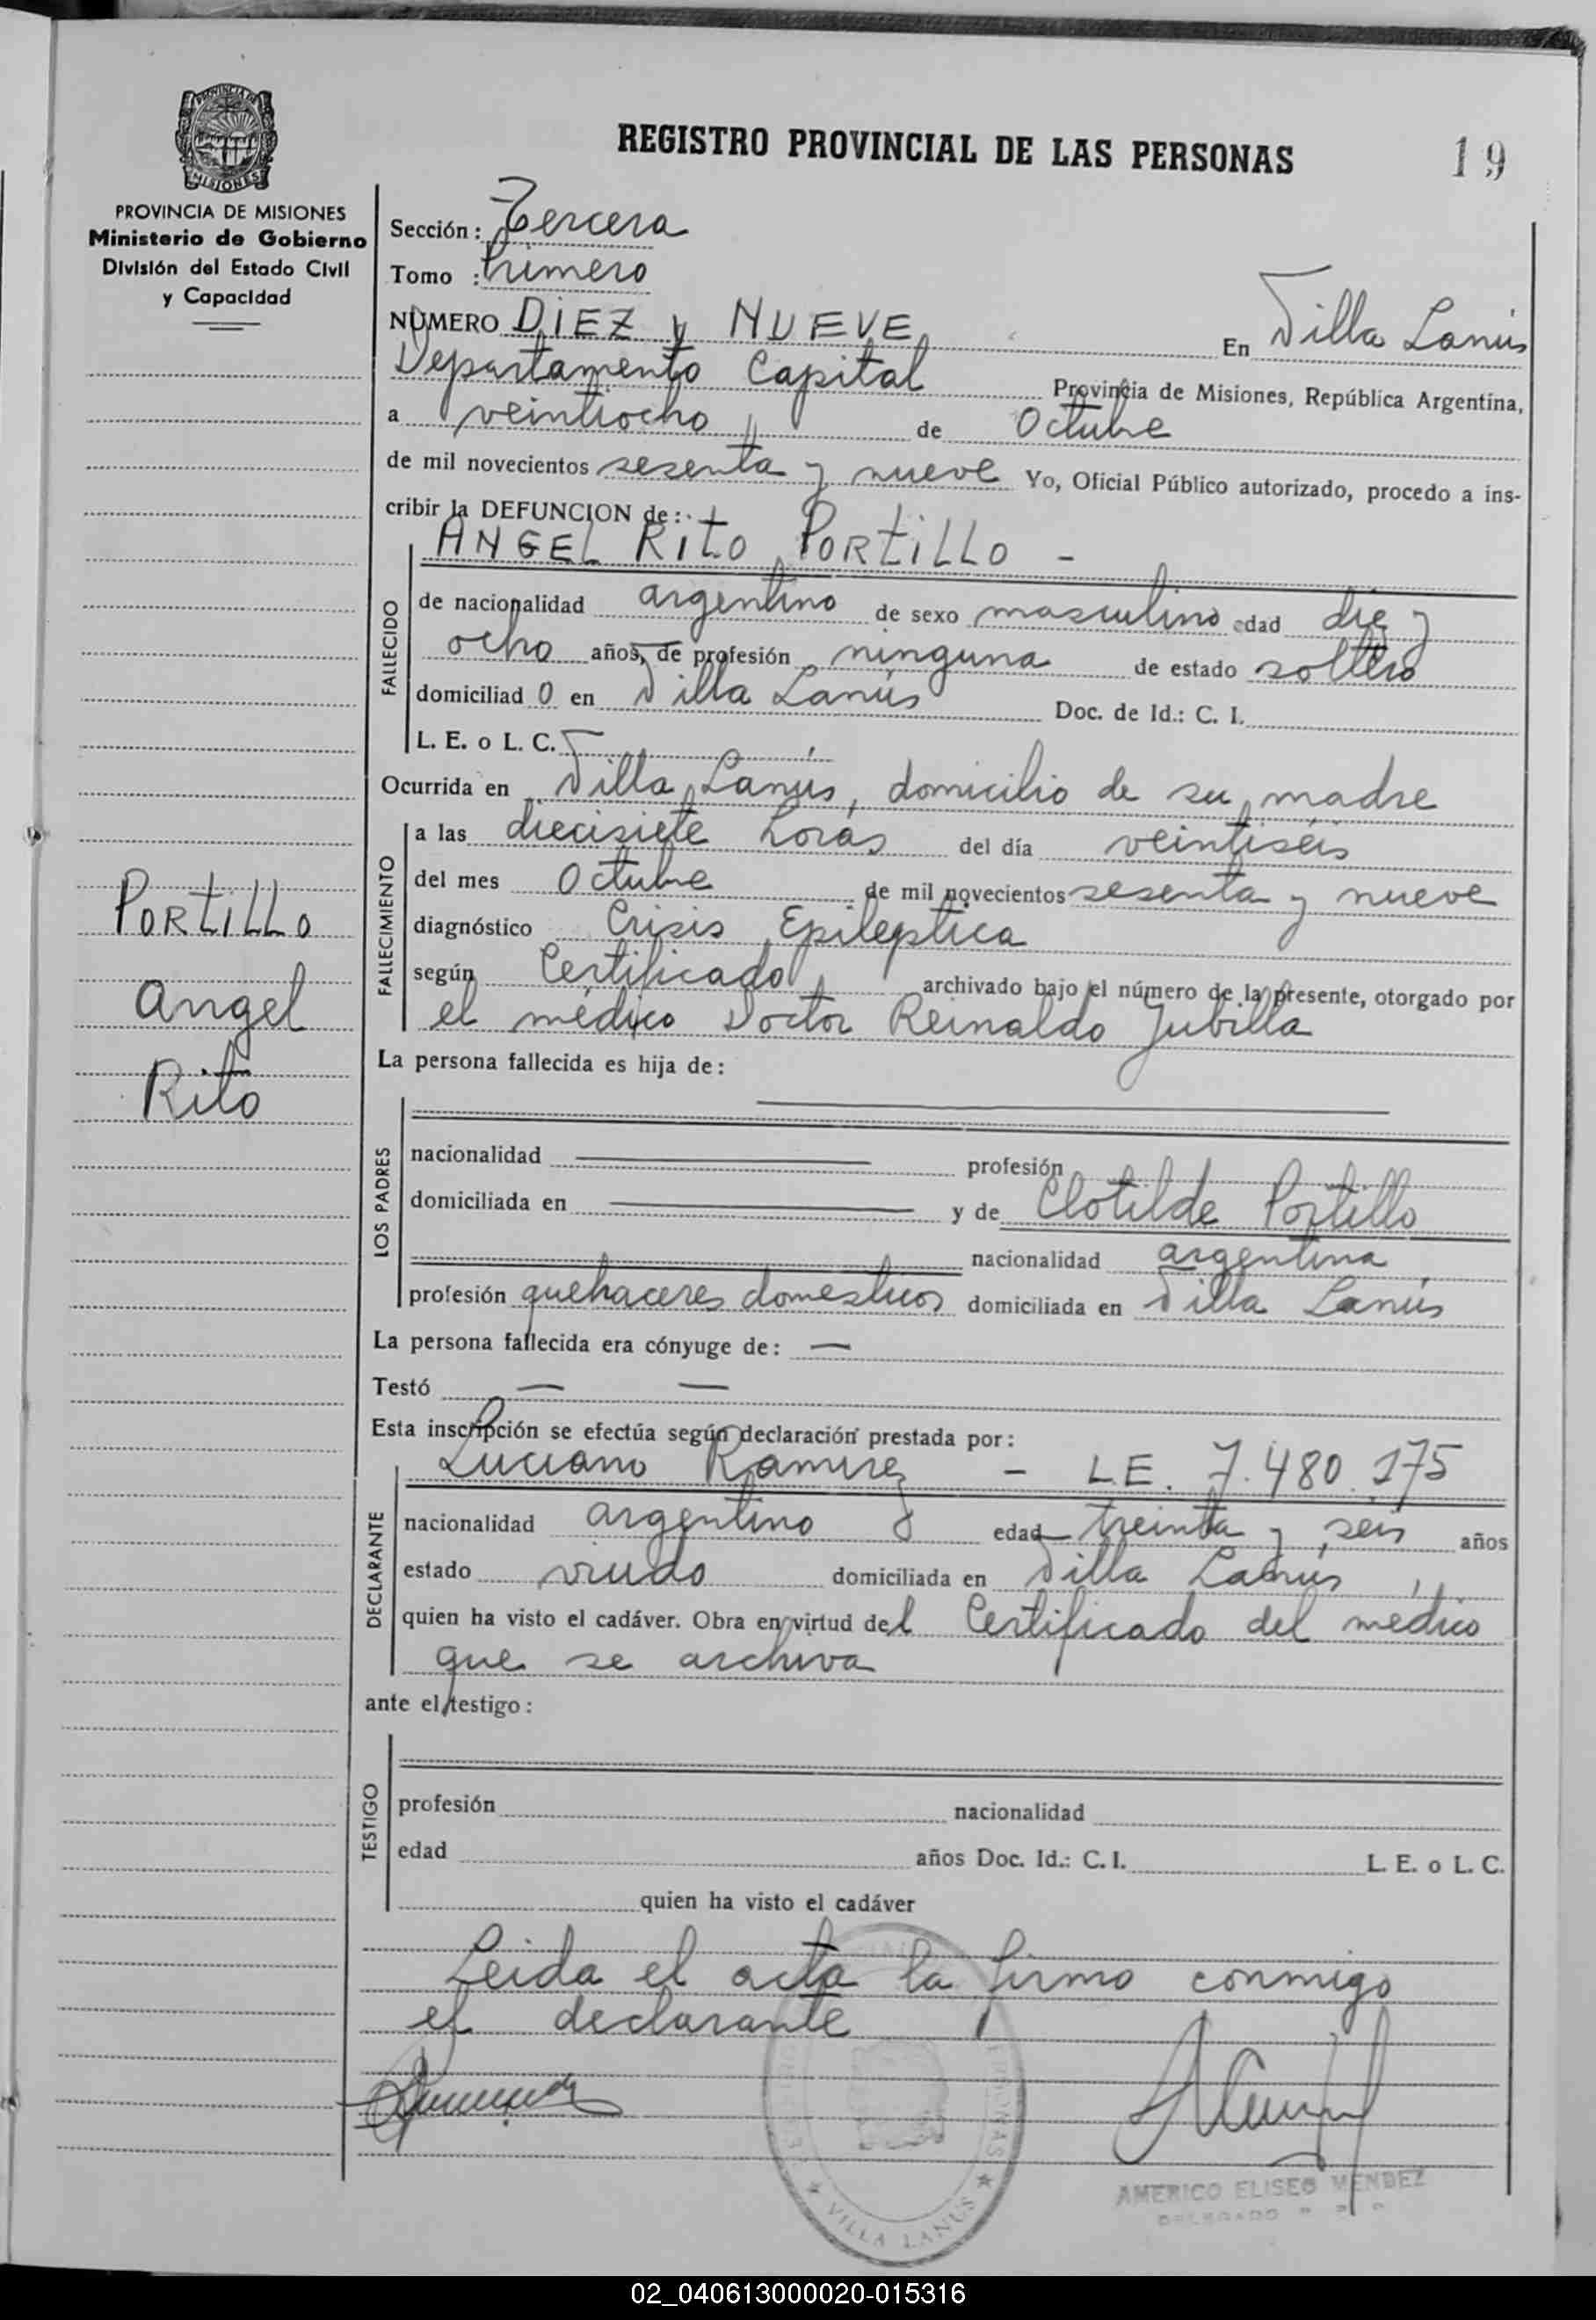 REGISTRO PROVINCIAL DE LAS PERSONAS
19
PROVINCIA DE MISIONES
MISIONES
PROVINCIA DE MISIONES
Ministerio de Gobierno
División del Estado Civil
y Capacidad
Sección: Tercera
Tomo : Primero
NUMERO DIEZ y NUEVE En Villa Lanús
Departamento Capital Provincia de Misiones, República Argentina,
a veintiocho de Octubre
de mil novecientos sesenta y nueve Yo, Oficial Público autorizado, procedo a ins-
cribir la DEFUNCION de:
ANGEL RITO PORTILLO -
FALLECIDO
de nacionalidad argentino de sexo masculino edad diez y
ocho años, de profesión ninguna de estado soltero
domiciliad o en Villa Lanús Doc. de Id.: C. I.
L. E. o L. C.
Ocurrida en Villa Lanús, domicilio de su madre
FALLECIMIENTO
a las diecisiete horas del día veintiséis
del mes Octubre de mil novecientos sesenta y nueve
diagnóstico Crisis Epileptica
según Certificado archivado bajo el número de la presente, otorgado por
el médico Doctor Reinaldo Jubilla
PORTILLO
Angel
Rito
La persona fallecida es hija de:
LOS PADRES
nacionalidad profesión
domiciliada en y de Clotilde Portillo
nacionalidad argentina
profesión quehaceres domesticos domiciliada en Villa Lanús
La persona fallecida era cónyuge de: —
Testó — —
Esta inscripción se efectúa según declaración prestada por:
DECLARANTE
Luciano Ramirez - L.E. 7.480.175
nacionalidad argentino edad treinta y seis años
estado viudo domiciliada en Villa Lanús,
quien ha visto el cadáver. Obra en virtud del Certificado del médico
que se archiva
ante el testigo:
TESTIGO
profesión nacionalidad
edad años Doc. Id.: C. I. L. E. o L. C.
quien ha visto el cadáver
Leida el acta la firmo conmigo
el declarante
VILLA LANUS
AMERICO ELISEO MENDEZ
DELEGADO
02_040613000020-015316